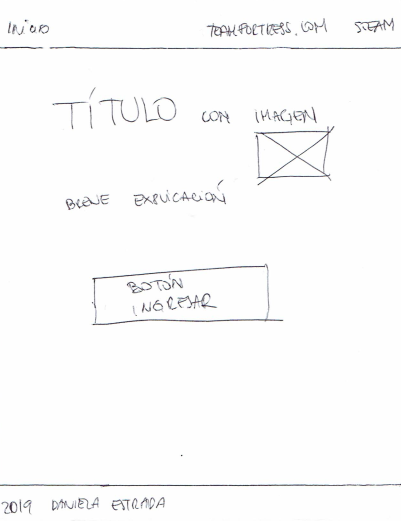 INICIO TEAMFORTRESS.COM STEAM
TÍTULO CON IMAGEN
BREVE EXPLICACIÓN
BOTÓN
INGRESAR
2019 DANIELA ESTRADA